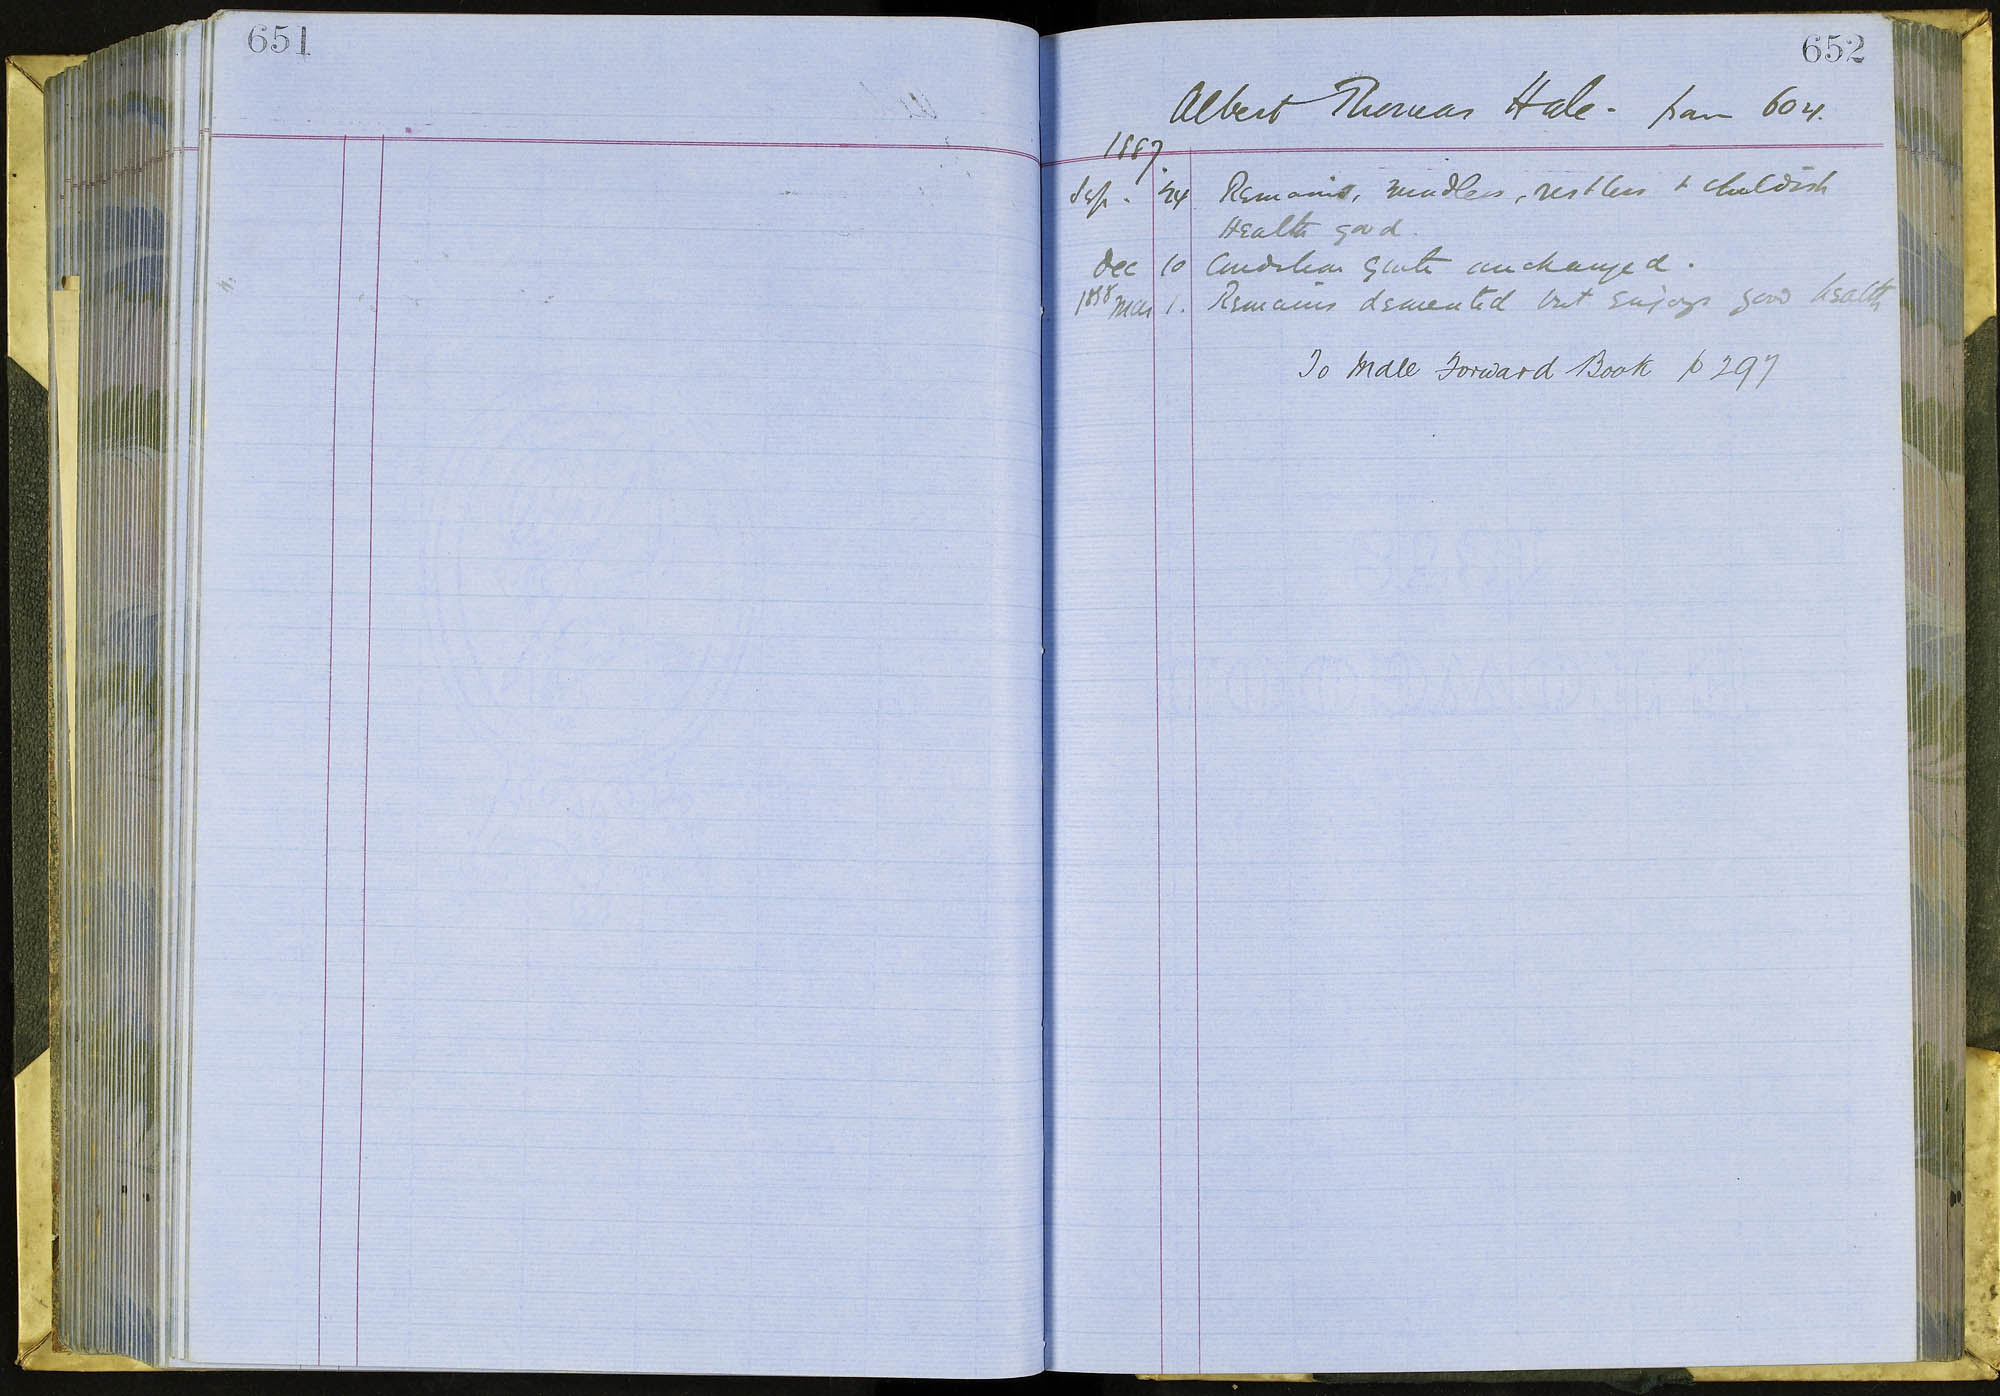 651
652
Albert Thomas Hale - from 604.
1887
Sep. 24 Remains, mindless, restless & childish
Health good.
Dec 10 Condition quite unchanged.
1888 Mar 1. Remains demented but enjoys good health
To Male Forward Book p 297